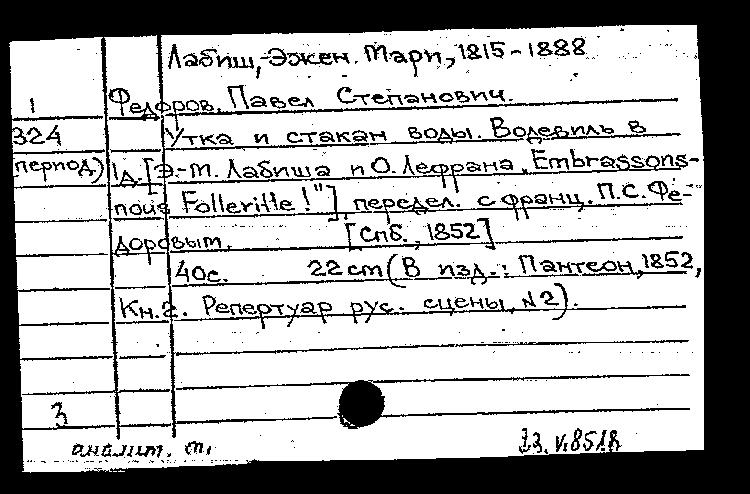 Лабиш, Эжен. Мари, 1815-1888
1 Федоров, Павел Степанович.
324 Утка и стакан воды. Водевиль в
(период) 1д. [Э.-М. Лабиша и О. Лефрана, Embrassons-
nous Folleville!"], передел. с франц. П.С. Фе-
доровым. [Спб., 1852]
40с. 22 cm (В изд.: Пантеон, 1852,
Кн. 2. Репертуар рус. сцены, №2).
3
аналит. т.